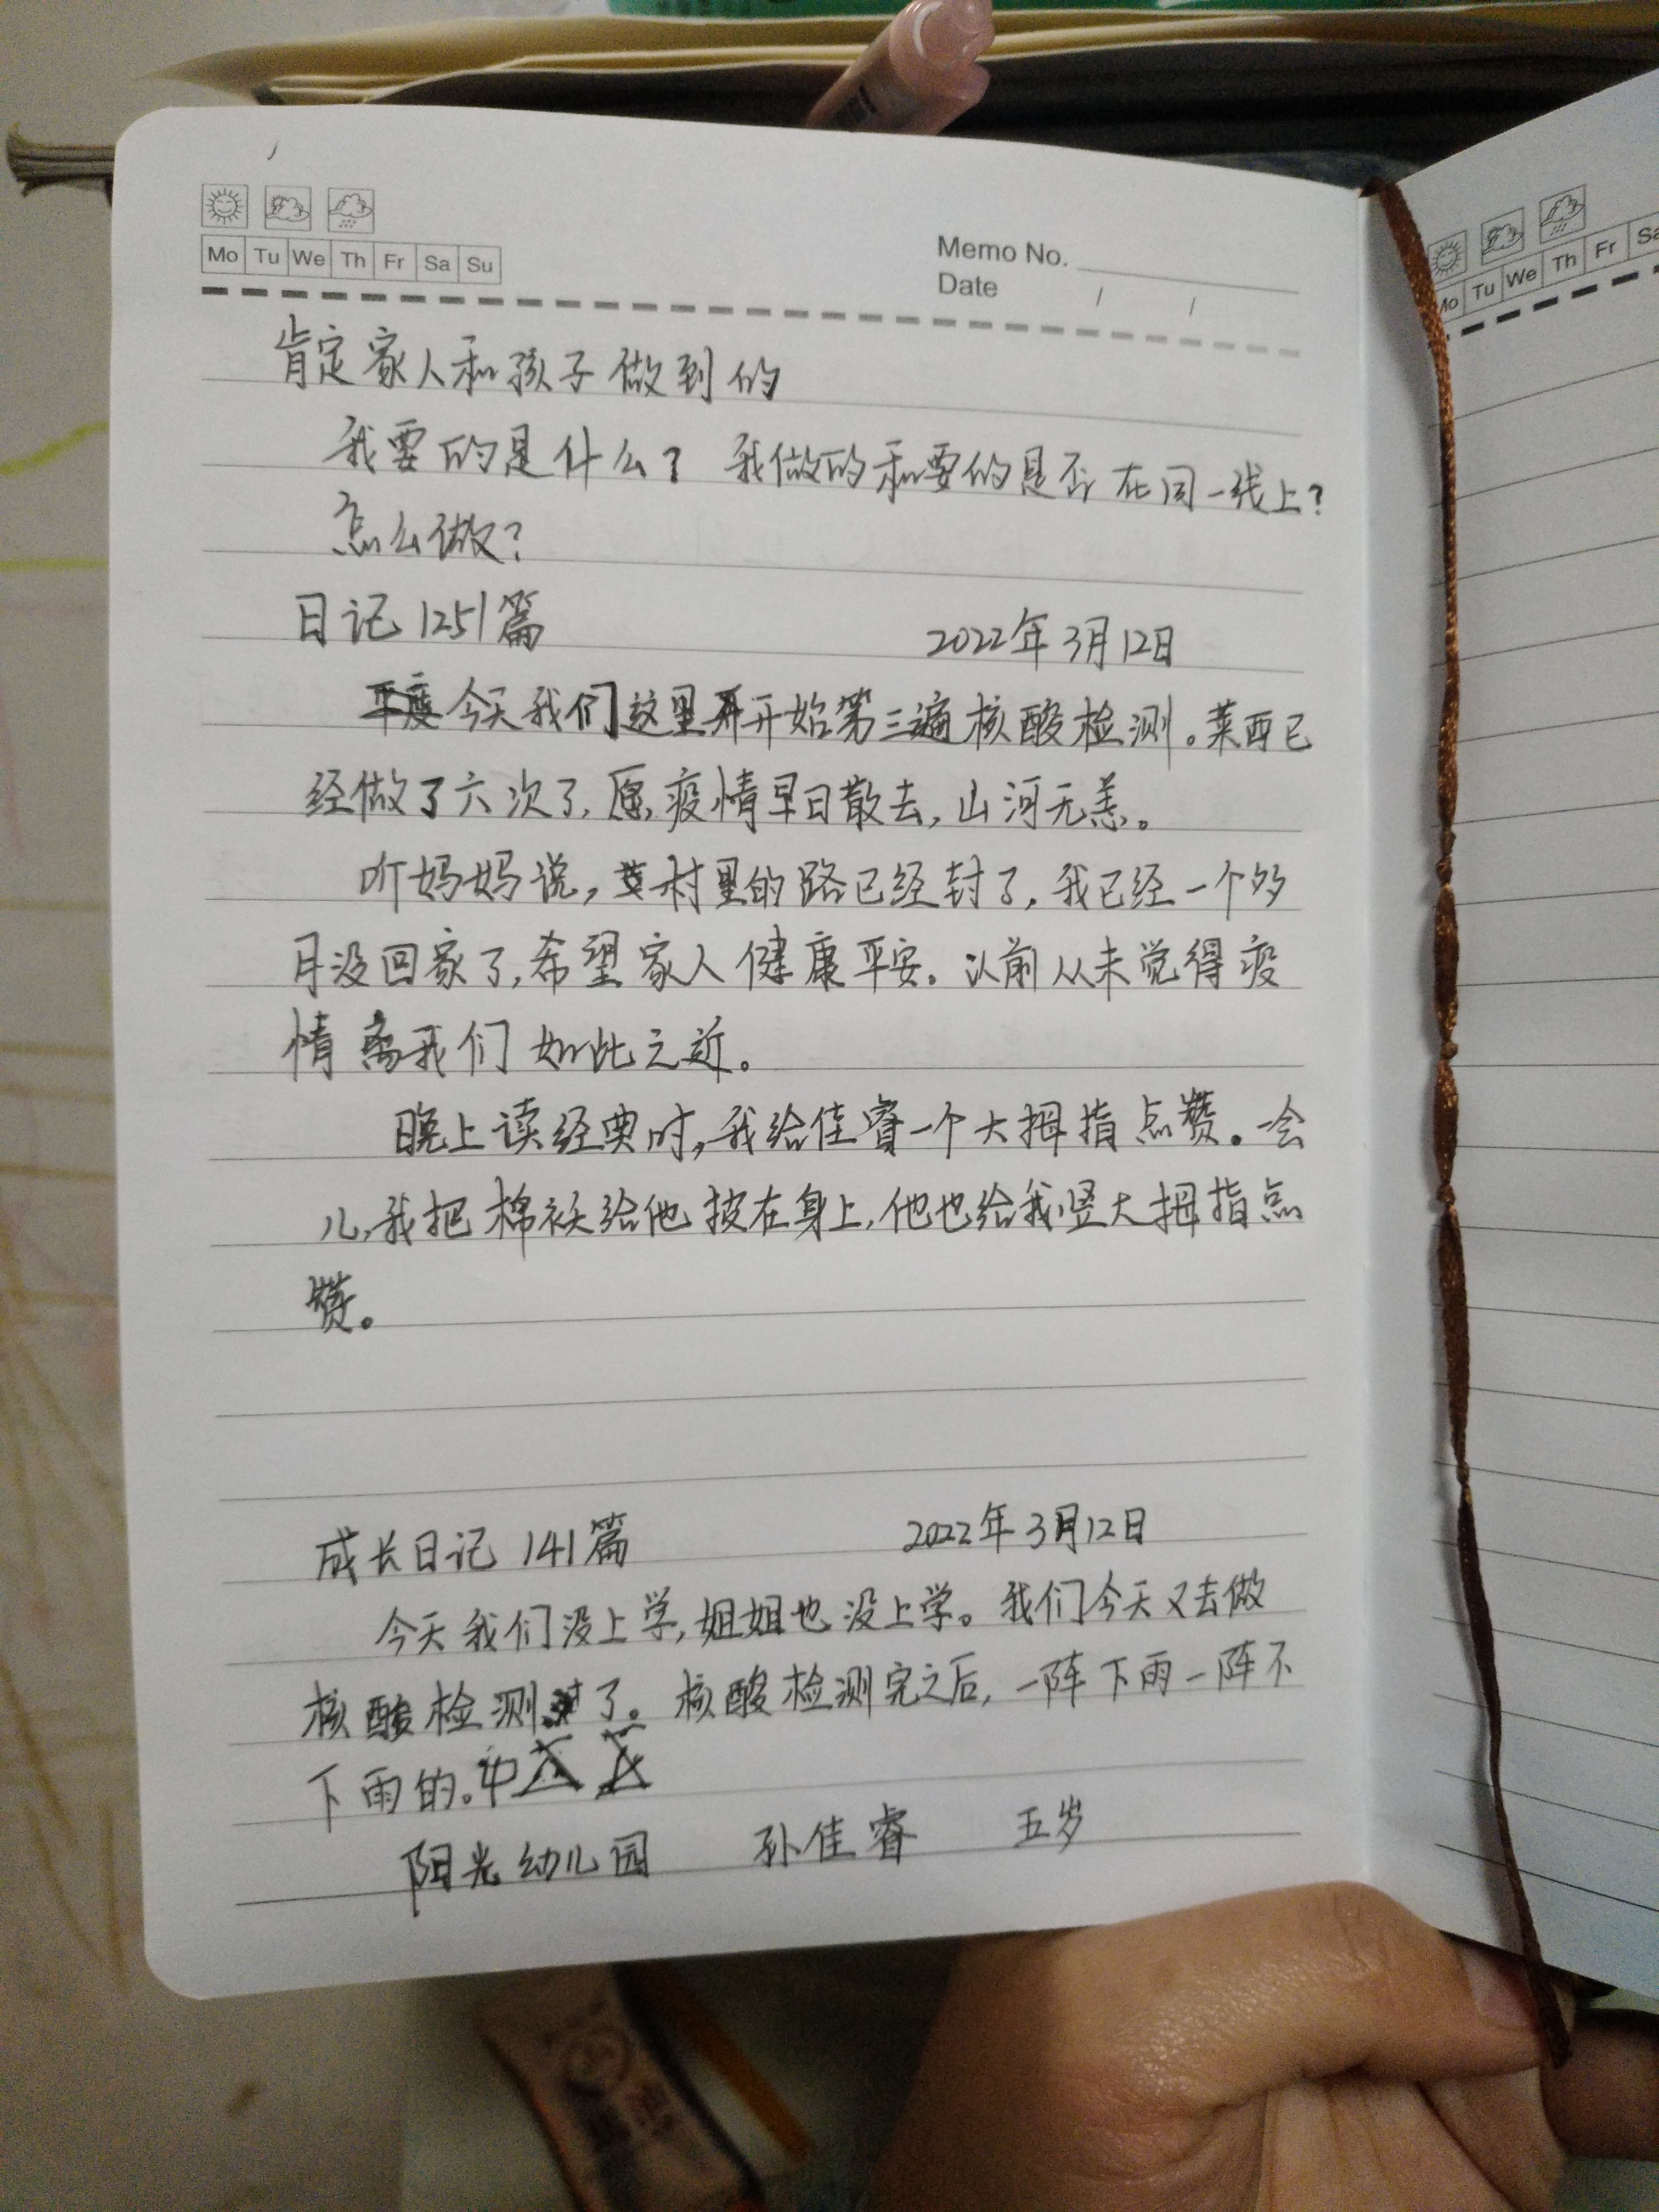 Mo Tu We Th Fr Sa Su
Memo No.
Date / /
肯定家人和孩子做到的
我要的是什么? 我做的和要的是否在同一线上?
怎么做?
日记1251篇 2022年3月12日
今天我们这里开始第三遍核酸检测。莱西已
经做了六次了,愿疫情早日散去,山河无恙。
听妈妈说,村里的路已经封了,我已经一个多
月没回家了,希望家人健康平安。以前从未觉得疫
情离我们如此之近。
晚上读经典时,我给佳睿一个大拇指点赞。一会
儿,我把棉袄给他披在身上,他也给我竖大拇指点
赞。
成长日记141篇 2022年3月12日
今天我们没上学,姐姐也没上学。我们今天又去做
核酸检测了。核酸检测完之后,一阵下雨一阵不
下雨的。中
阳光幼儿园 孙佳睿 五岁
Mo Tu We Th Fr Sa